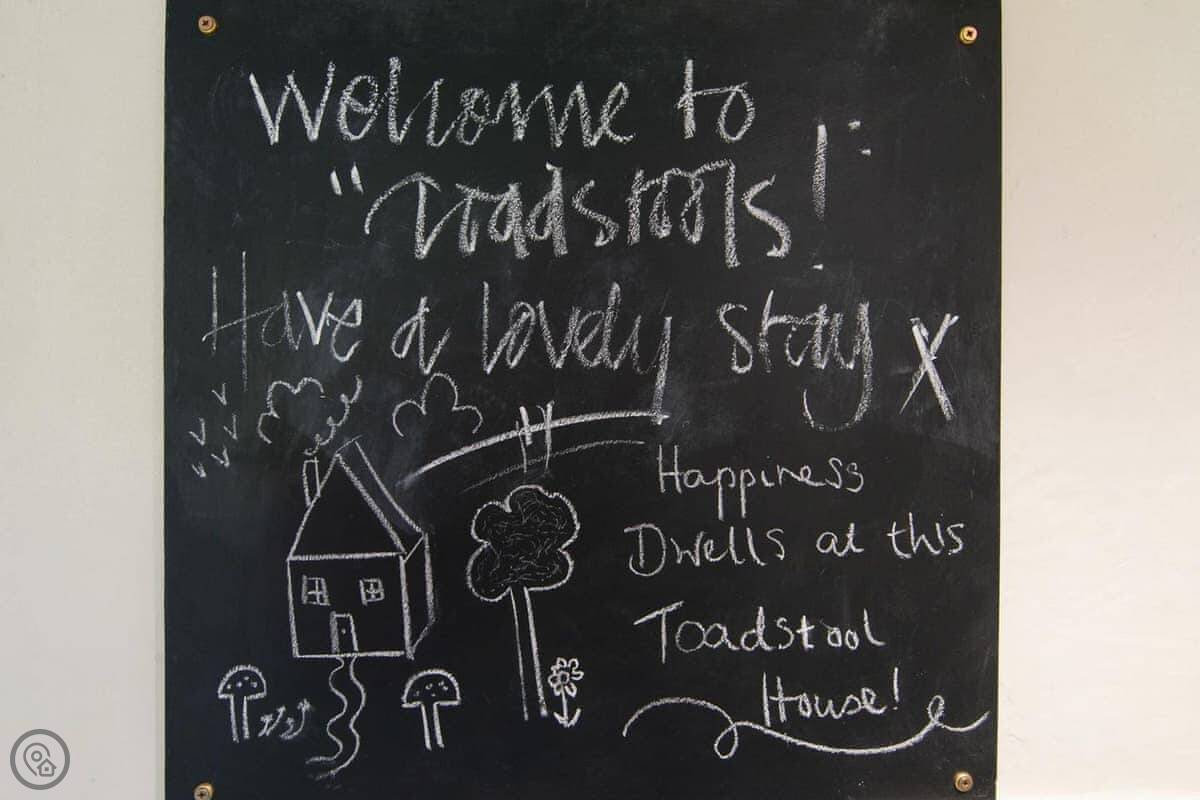 Welcome to
"Toadstools"!
Have a lovely stay X
Happiness
Dwells at this
Toadstool
House!